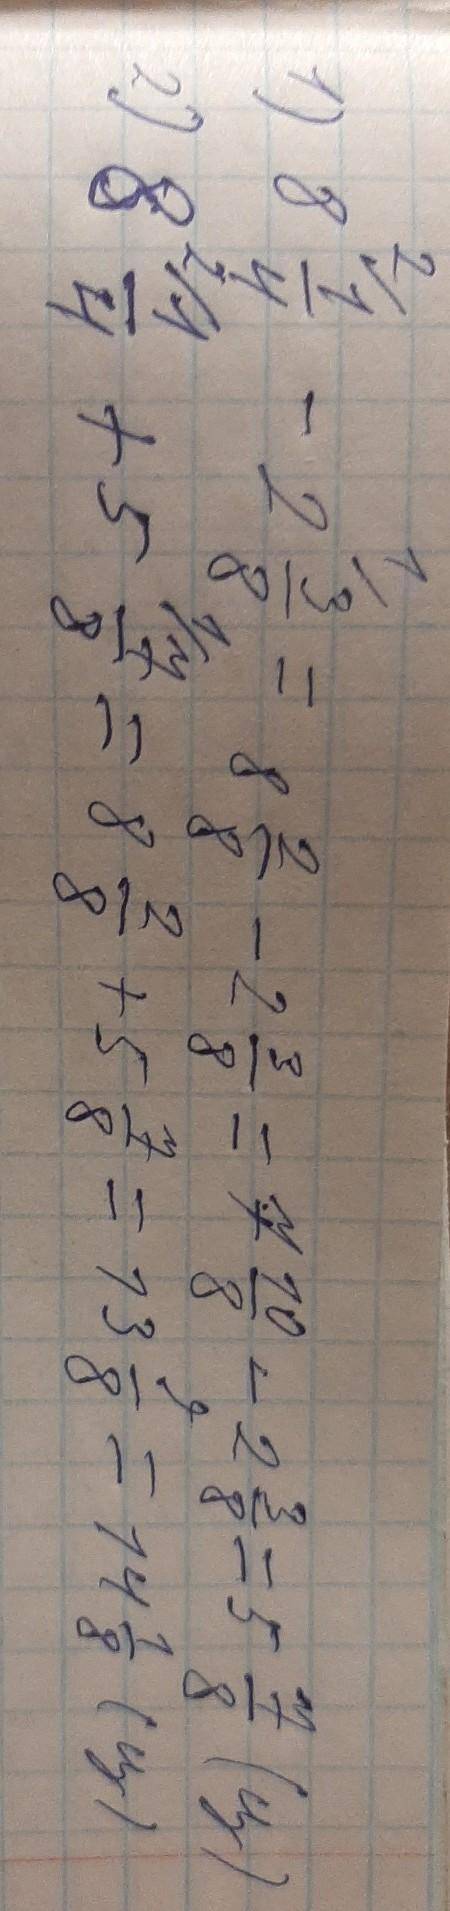 1) 8 2/1/4 - 2 1/3/8 = 8 2/8 - 2 3/8 = 7 10/8 - 2 3/8 = 5 7/8 (ц)
2) 8 2/1/4 + 5 1/7/8 = 8 2/8 + 5 7/8 = 13 9/8 = 14 1/8 (ц)